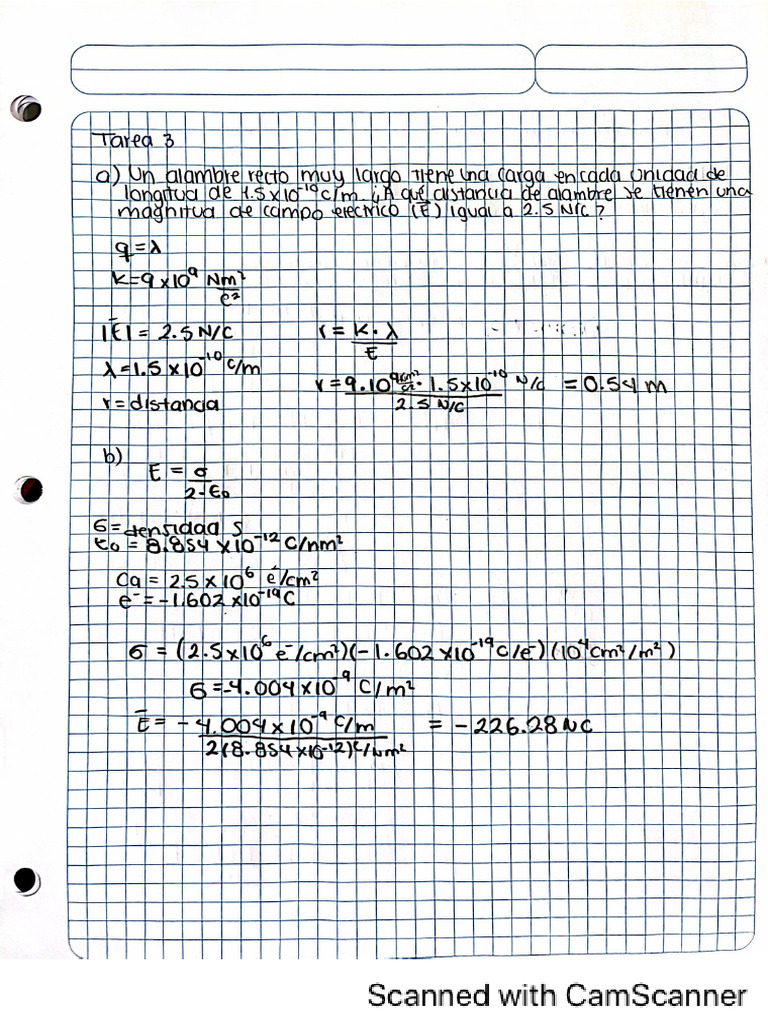 Tarea 3
a) Un alambre recto muy largo tiene una carga en cada unidad de
longitud de 1.5x10⁻¹⁰ c/m. ¿A qué distancia de alambre se tienen una
magnitud de campo eléctrico (E̅) igual a 2.5 N/C?
q = λ
K=9x10⁹ Nm²/e²
|E̅| = 2.5 N/C
r = K·λ/E
λ = 1.5x10⁻¹⁰ C/m
r = 9.10⁹ · 1.5x10⁻¹⁰ N/c / 2.5 N/C = 0.54 m
r = distancia
b)
E = σ/2·ϵ₀
6= densidad S
ϵ₀ = 8.854 x10⁻¹² C/nm²
Ca = 2.5x10⁶ e⁻/cm²
e⁻=-1.602 x10⁻¹⁹C
6 = (2.5x10⁶ e⁻/cm²)(-1.602 x10⁻¹⁹C/e⁻)(10⁴cm²/m²)
6=-4.004x10⁻⁹ C/m²
E̅ = -4.004x10⁻⁹ C/m / 2(8.854x10⁻¹²)C/Nm² = -226.28 NC
Scanned with CamScanner